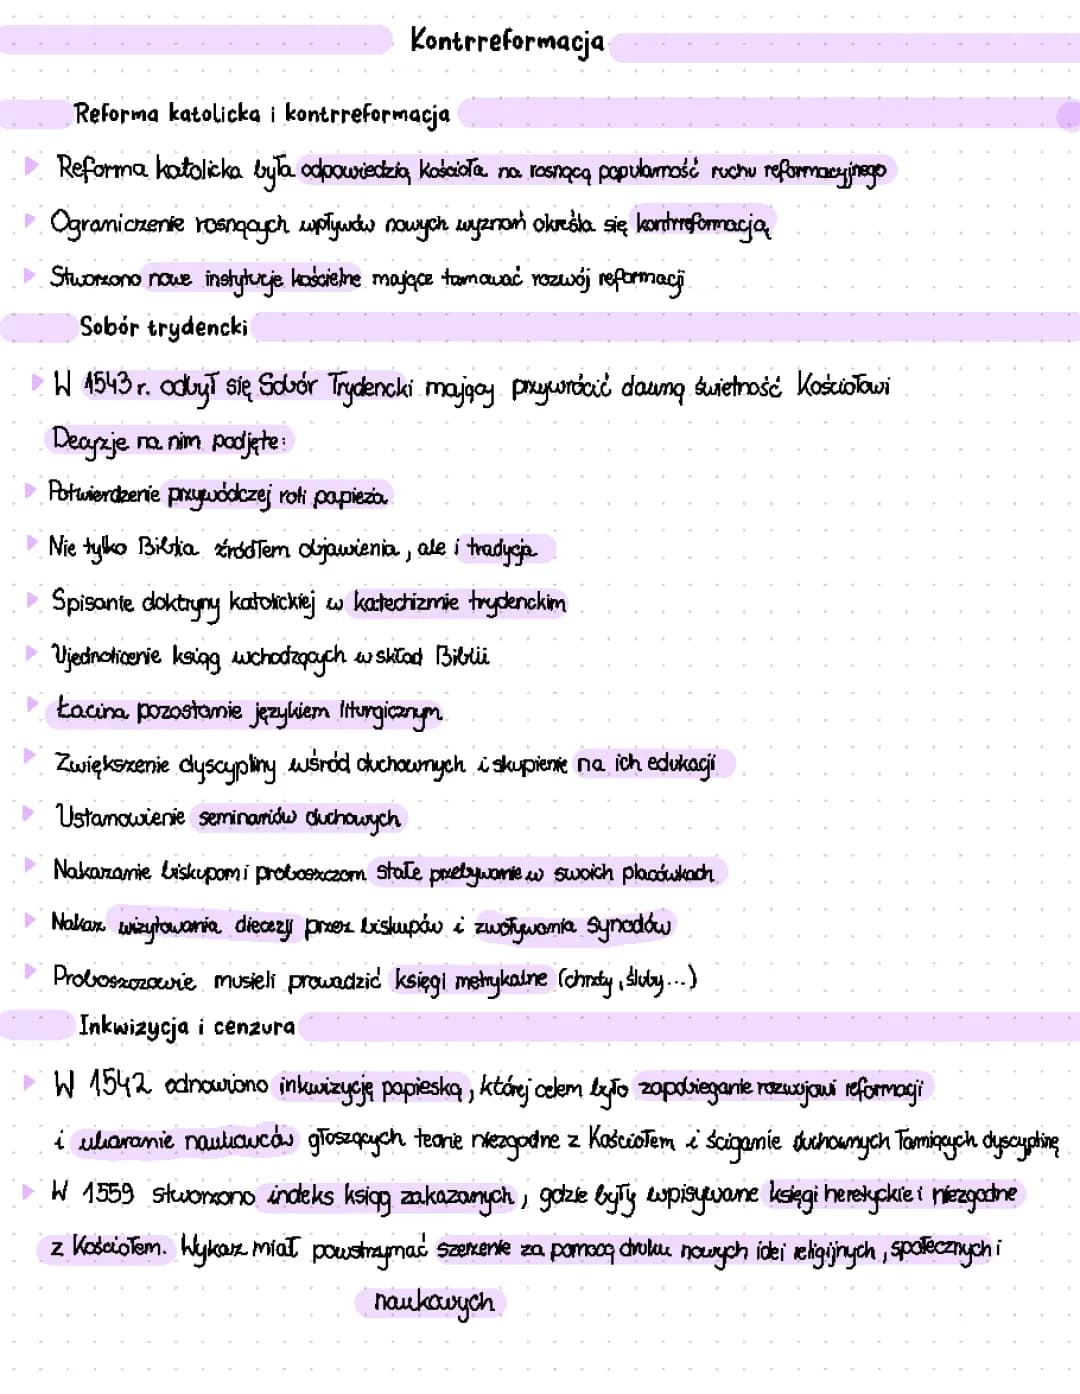 Kontrreformacja
Reforma katolicka i kontrreformacja
Reforma katolicka była odpowiedzią kościoła na rosnącą popularność ruchu reformacyjnego
Ograniczenie rosnących wpływów nowych wyznań określa się kontrreformacją
Stworzono nowe instytucje kościelne mające tamować rozwój reformacji
Sobór trydencki
W 1543 r. odbył się Sobór Trydencki mający przywrócić dawną świetność Kościołowi
Decyzje na nim podjęte:
Potwierdzenie przywódczej roli papieża
Nie tylko Biblia źródłem objawienia, ale i tradycja
Spisanie doktryny katolickiej w katechizmie trydenckim
Ujednolicenie ksiąg wchodzących w skład Biblii
Łacina pozostanie językiem liturgicznym
Zwiększenie dyscypliny wśród duchownych i skupienie na ich edukacji
Ustanowienie seminariów duchowych
Nakazanie biskupom i proboszczom stałe przebywanie w swoich placówkach
Nakaz wizytowania diecezji przez biskupów i zwoływania synodów
Proboszczowie musieli prowadzić księgi metrykalne (chrzty, śluby...)
Inkwizycja i cenzura
W 1542 odnowiono inkwizycję papieską, której celem było zapobieganie rozwojowi reformacji
i ukaranie naukowców głoszących teorie niezgodne z Kościołem i ściganie duchownych łamiących dyscyplinę
W 1559 stworzono indeks ksiąg zakazanych, gdzie były wpisywane księgi heretyckie i niezgodne
z Kościołem. Wykaz miał powstrzymać szerzenie za pomocą druku nowych idei religijnych, społecznych i
naukowych